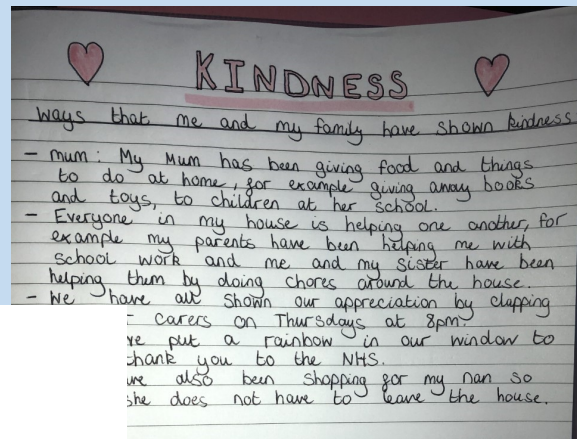 KINDNESS
ways that me and my family have shown kindness
- mum: My Mum has been giving food and things
to do at home, for example giving away books
and toys, to children at her school.
- Everyone in my house is helping one another, for
example my parents have been helping me with
school work and me and my sister have been
helping them by doing chores around the house.
- We have all shown our appreciation by clapping
carers on Thursdays at 8pm.
put a rainbow in our window to
thank you to the NHS.
also been shopping for my nan so
she does not have to leave the house.